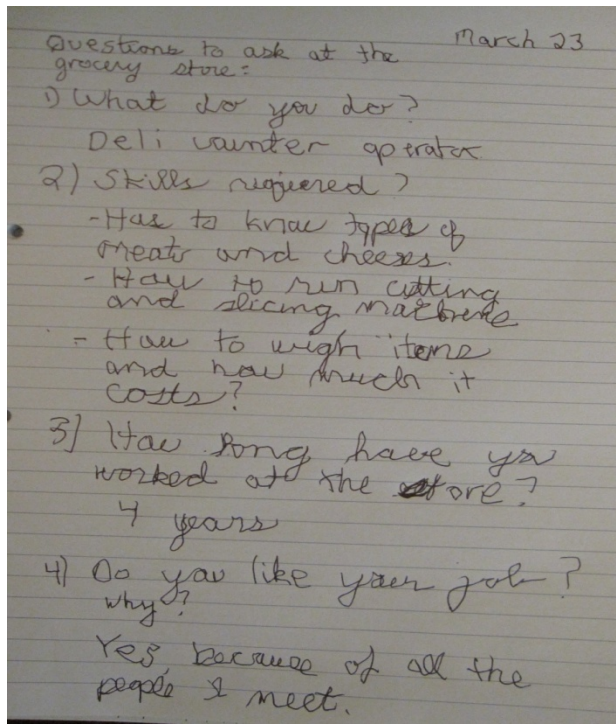 March 23
Questions to ask at the
grocery store:
1) What do you do?
Deli counter operator
2) Skills required?
- Has to know types of
meats and cheeses.
- How to run cutting
and slicing machine
- How to weigh items
and how much it
costs?
3) How long have you
worked at the store?
4 years
4) Do you like your job?
Why?
Yes, because of all the
people I meet.